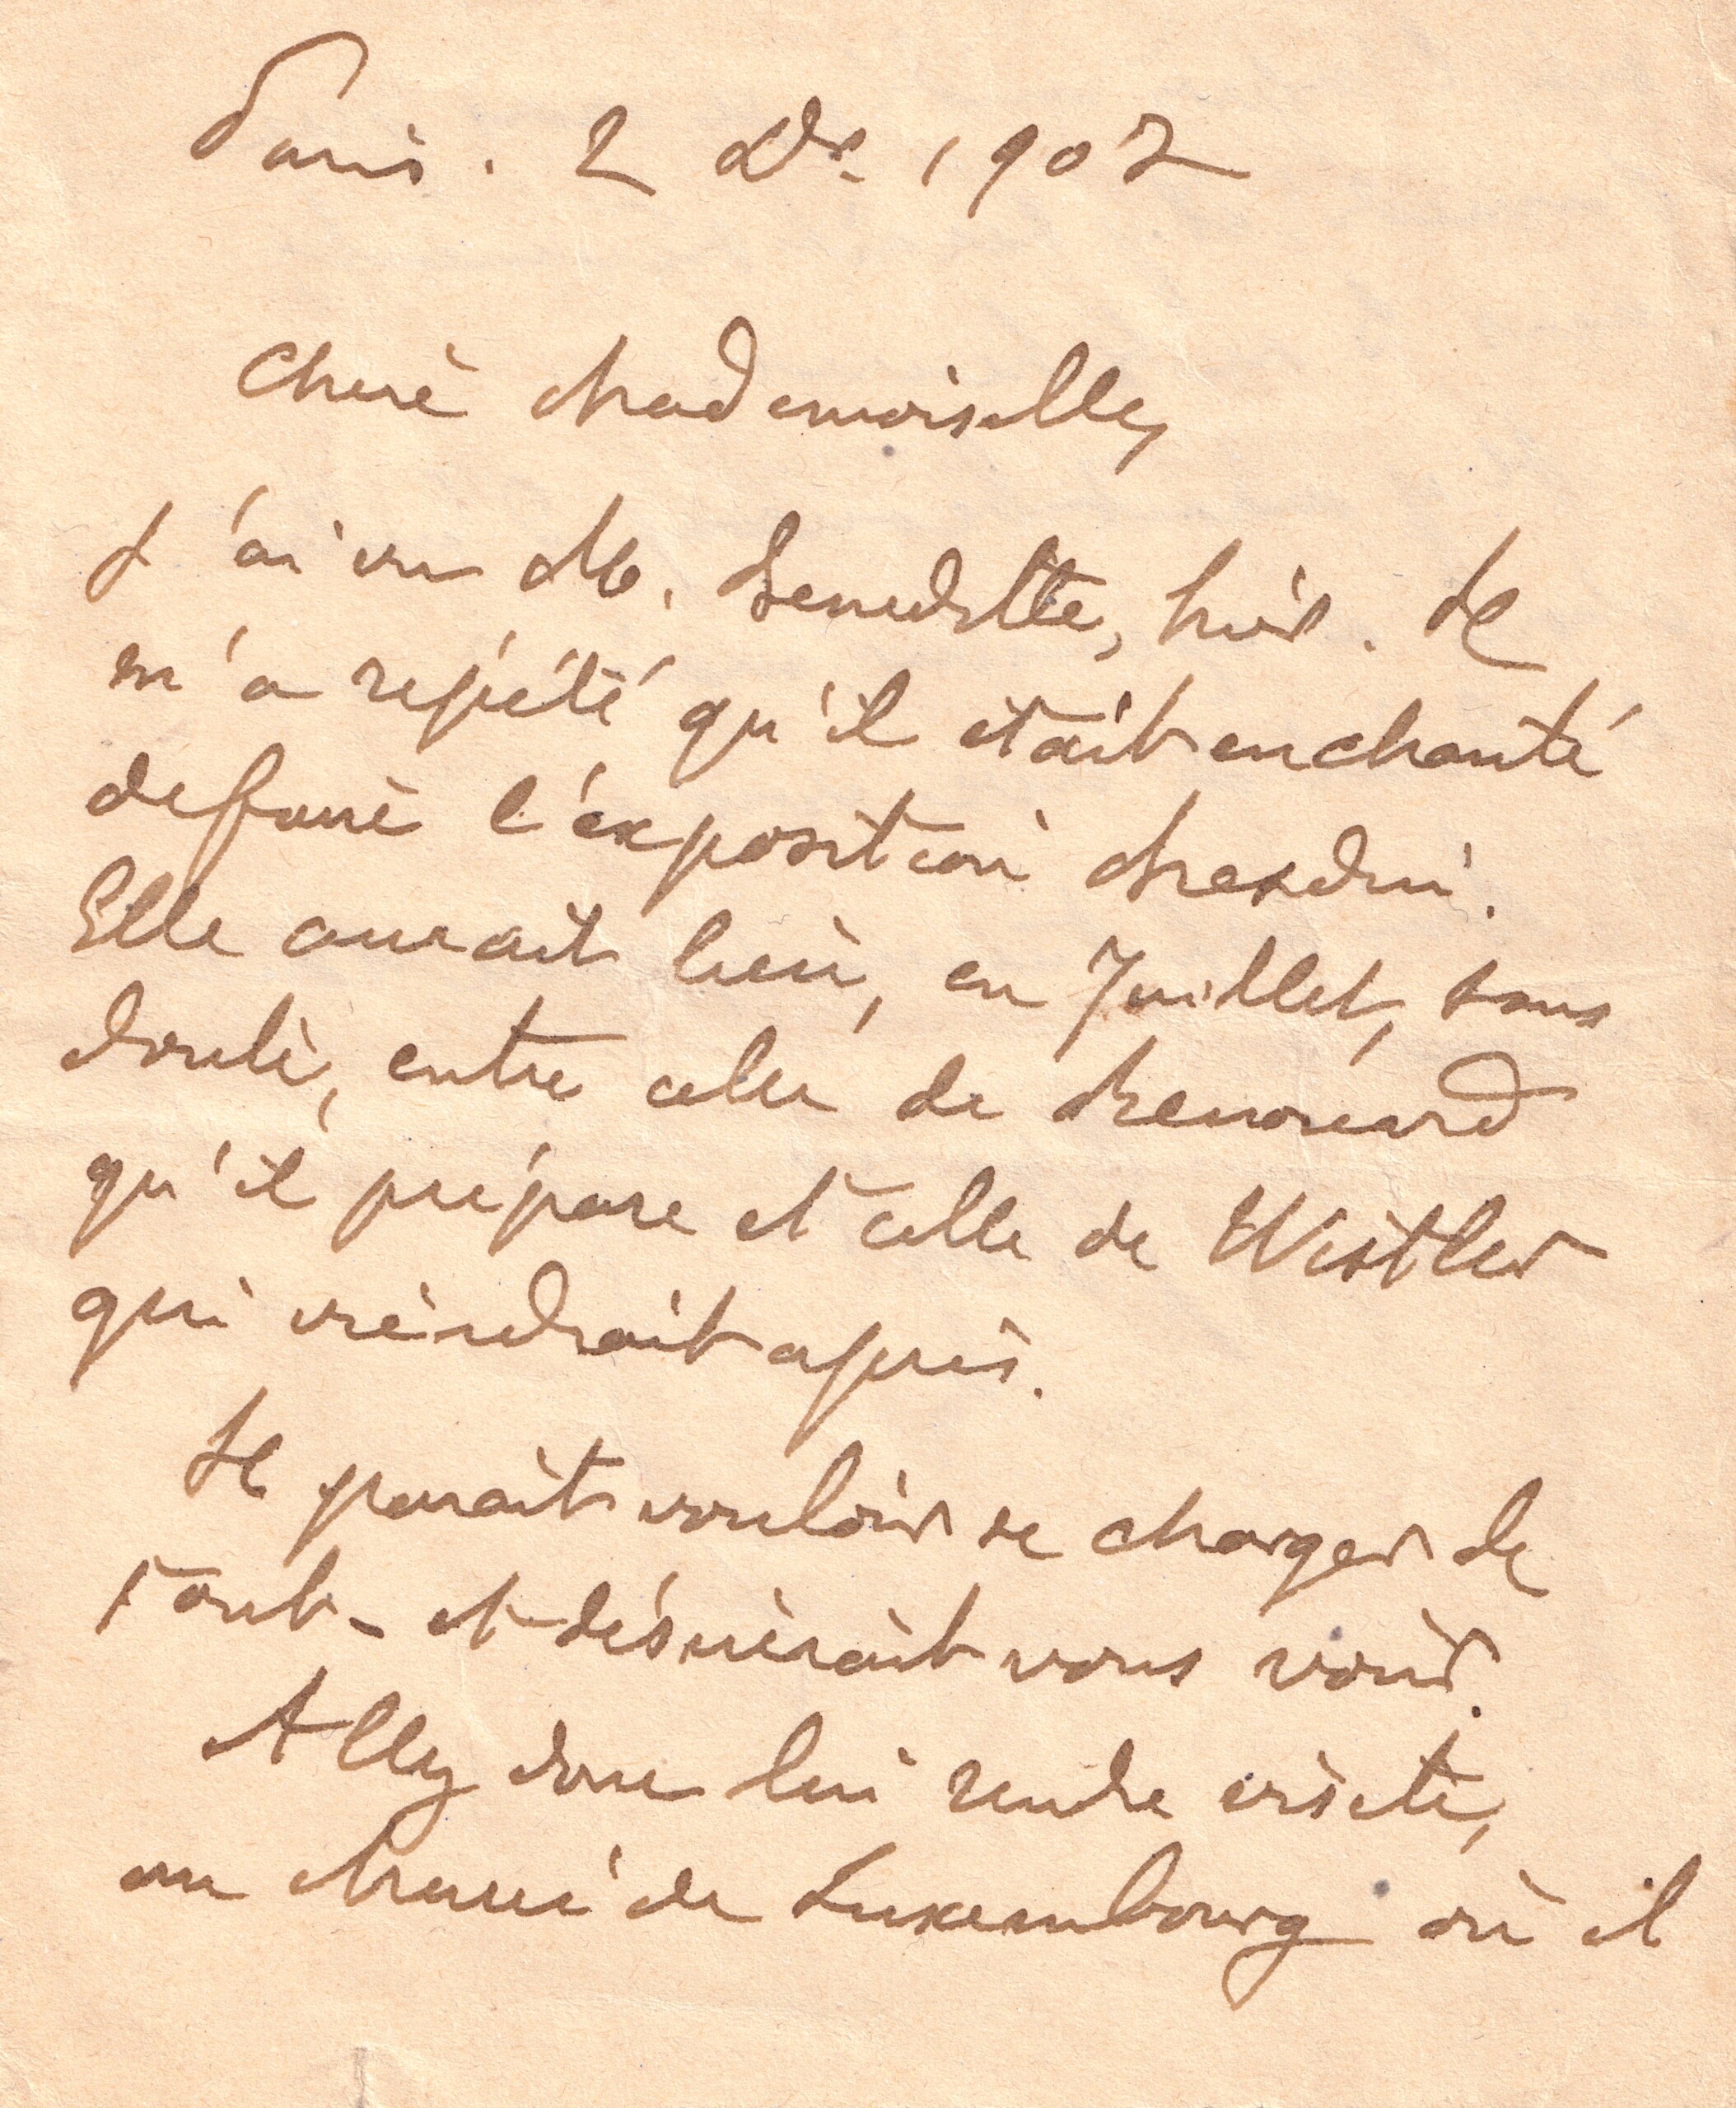 Paris. 2 Xbre 1907
Chere Mademoiselle,
J'ai vu M. Benedítte, hier. Il
m'a répété qu'il était enchanté
de faire l'exposition
Elle aurait lieu, en Juillet, sans
doute, entre celle de Renouard
qu'il prépare et celle de Wistler
qui viendrait après.
Il parait vouloir se charger de
tout - et désirerait vous voir.
Allez donc lui rendre visite,
au Musée du Luxembourg où il